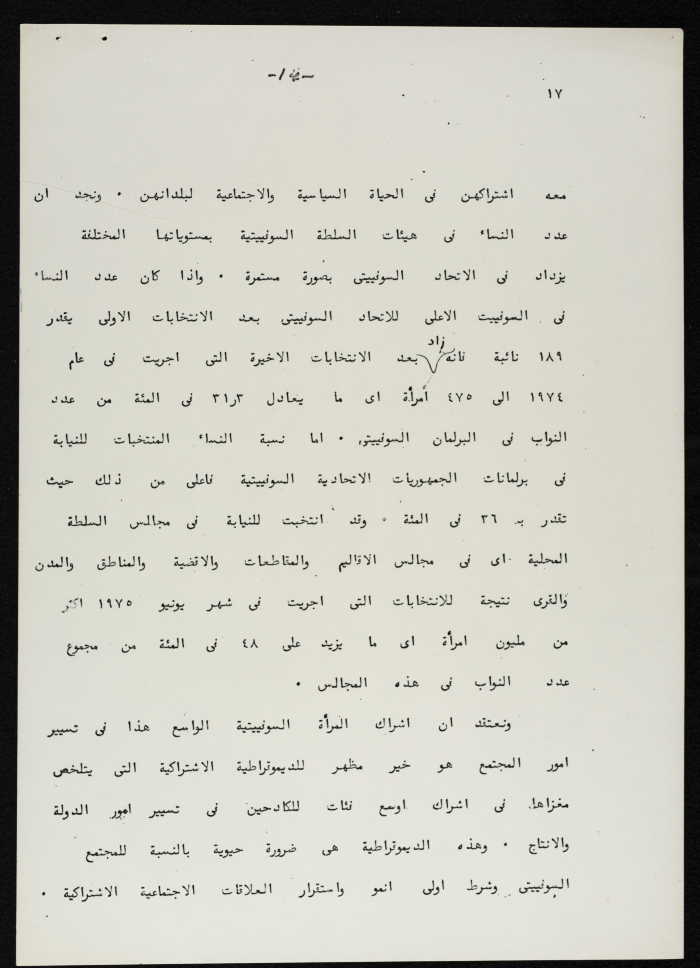 ١٧
معه اشتراكهن فى الحياة السياسية والاجتماعية لبلدانهن . ونجد ان
عدد النساء فى هيئات السلطة السوفييتية بمستوياتها المختلفة
يزداد فى الاتحاد السوفييتى بصورة مستمرة . واذا كان عدد النساء
فى السوفييت الاعلى للاتحاد السوفييتى بعد الانتخابات الاولى يقدر
١٨٩ نائبة فانه زاد بعد الانتخابات الاخيرة التى اجريت فى عام
١٩٧٤ الى ٤٧٥ أمرأة اى ما يعادل ٣ر٣١ فى المئة من عدد
النواب فى البرلمان السوفييتى . اما نسبة النساء المنتخبات للنيابة
فى برلمانات الجمهوريات الاتحادية السوفييتية فاعلى من ذلك حيث
تقدر بـ ٣٦ فى المئة . وقد انتخبت للنيابة فى مجالس السلطة
المحلية اى فى مجالس الاقاليم والمقاطعات والاقضية والمناطق والمدن
والقرى نتيجة للانتخابات التى اجريت فى شهر يونيو ١٩٧٥ اكثر
من مليون امرأة اى ما يزيد على ٤٨ فى المئة من مجموع
عدد النواب فى هذه المجالس .
ونعتقد ان اشراك المرأة السوفييتية الواسع هذا فى تسيير
امور المجتمع هو خير مظهر للديموتراطية الاشتراكية التى يتلخص
مغزاها فى اشراك اوسع فئات للكادحين فى تسيير امور الدولة
والانتاج . وهذه الديموتراطية هى ضرورة حيوية بالنسبة للمجتمع
السوفييتى وشرط اولى انمو واستقرار العلاقات الاجتماعية الاشتراكية .